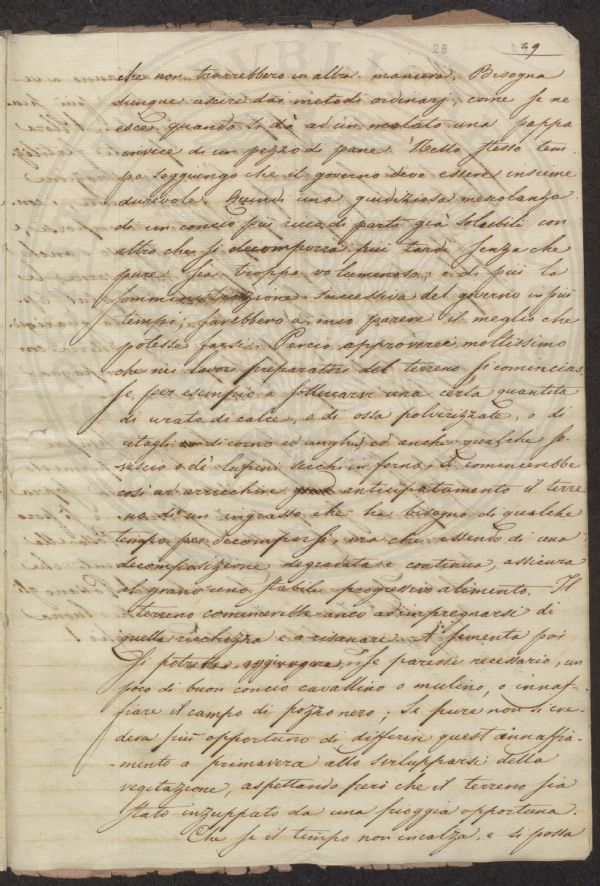 28 29
che non trarrebbero in altra maniera. Bisogna
dunque uscire dai metodi ordinarj, come se ne
esce quando si dà ad un malato una pappa
invece di un pezzo di pane. Nello stesso tem-
po soggiungo che il governo deve essere insieme
durevole. Quindi una giudiziosa mescolanza
di un concio più ricco di parti già solubili con
altro che si decomporrà più tardi senza che
pure sia troppo voluminoso, e di più la
somministrazione successiva del governo in più
tempi, sarebbero a mio parere il meglio che
potesse farsi. Perciò approverei moltissimo
che nei lavori preparatori del terreno si comincias-
se per esempio a sotterrarvi una certa quantità
di urato di calce, o di ossa polverizzate, o di
ritagli di corno ed unghie ed anche qualche so-
vescio o de' lupini secchi in forno. Si comincerebbe
così ad arricchire anticipatamente il terre-
no di un ingrasso che ha bisogno di qualche
tempo per decomporsi, ma che essendo di una
decomposizione degradata e continua, assicura
al grano uno stabile progressivo alimento. Il
terreno comincerebbe anco ad impregnarsi di
quella ricchezza e a risanare. A sementa poi
si potrebbe aggiungere, se paresse necessario, un
poco di buon concio cavallino o mulino, o innaf-
fiare il campo di pozzo nero; se pure non si cre-
derà più opportuno di differir quest'annaffia-
mento a primavera allo svilupparsi della
vegetazione, aspettando però che il terreno sia
stato inzuppato da una pioggia opportuna.
Che se il tempo non incalza, e si possa